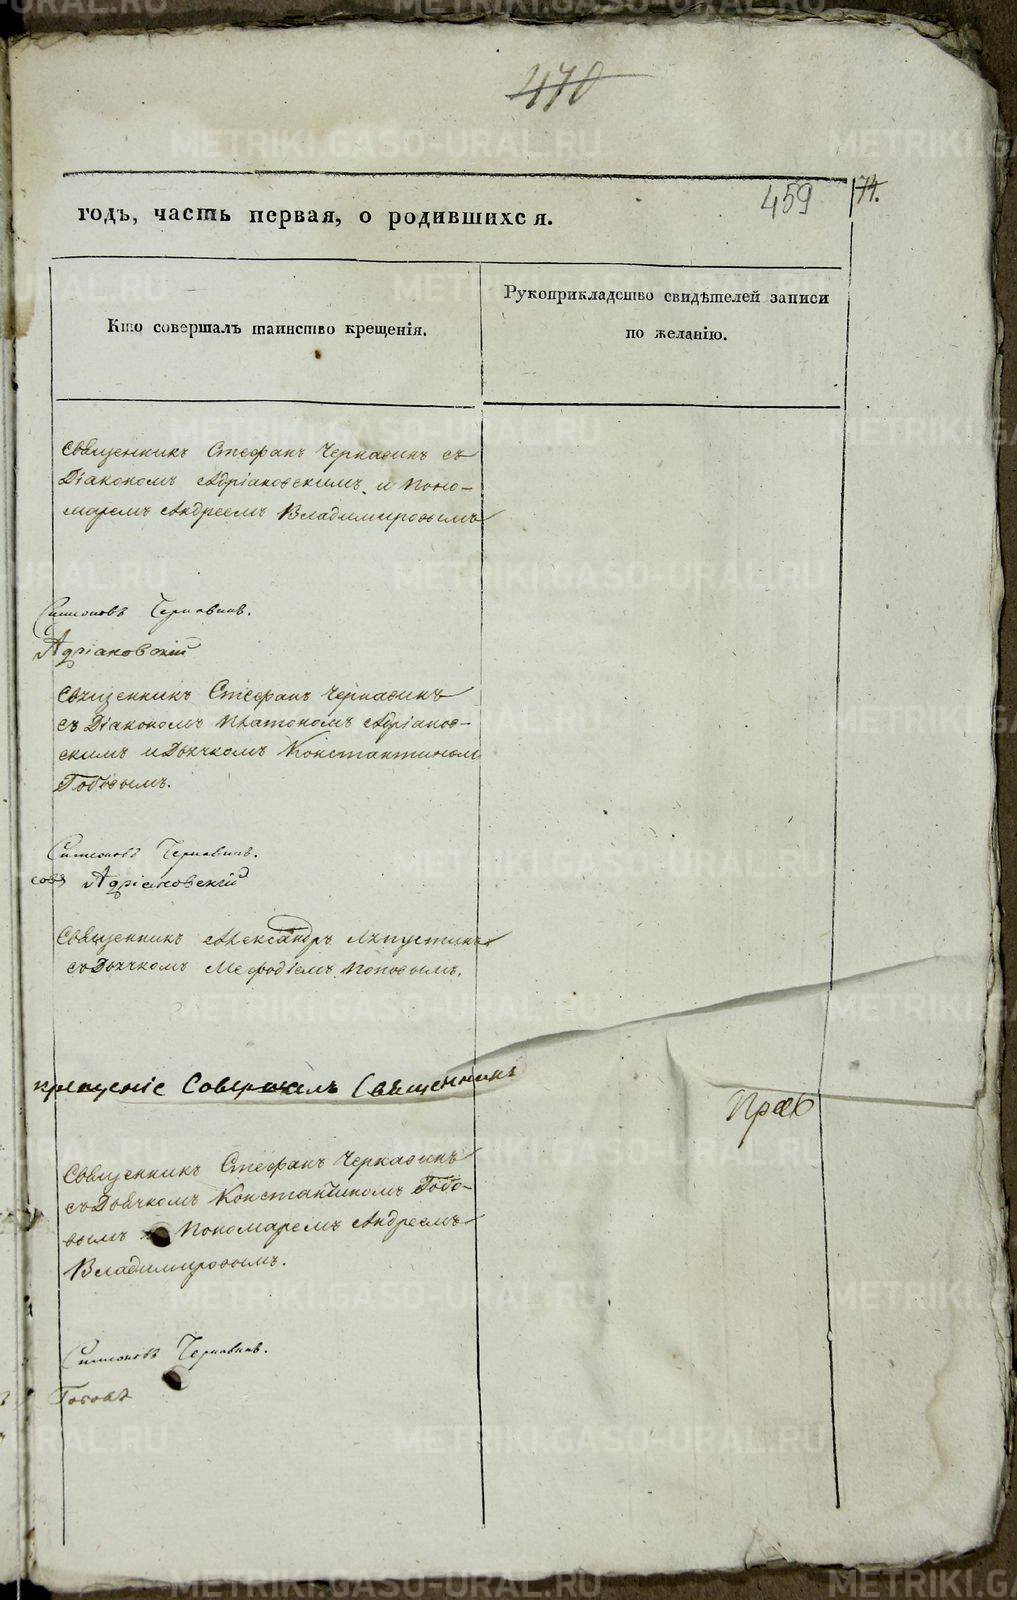 470
459
74.
годъ, часть первая, о родившихся.
Кто совершалъ таинство крещенія.
Рукоприкладство свидѣтелей записи
по желанію.
Священникъ Стефанъ Чернавинъ съ
Діакономъ Адріановскимъ и Поно-
маремъ Андреемъ Владимировымъ
Чернавинъ.
Адріановскій
Священникъ Стефанъ Чернавинъ
съ Діакономъ Платономъ Адріанов-
скимъ и Дьячкомъ Константиномъ
Чернавинъ.
Адріановскій
Священникъ Александръ
съ Дьячкомъ Мефодіемъ Поповымъ.
крещеніе Совершалъ Священникъ
Священникъ Стефанъ Чернавинъ
съ Дьячкомъ Константиномъ
вымъ Пономаремъ Андреемъ
Владимировымъ.
Чернавинъ.
METRIKI.GASO-URAL.RU